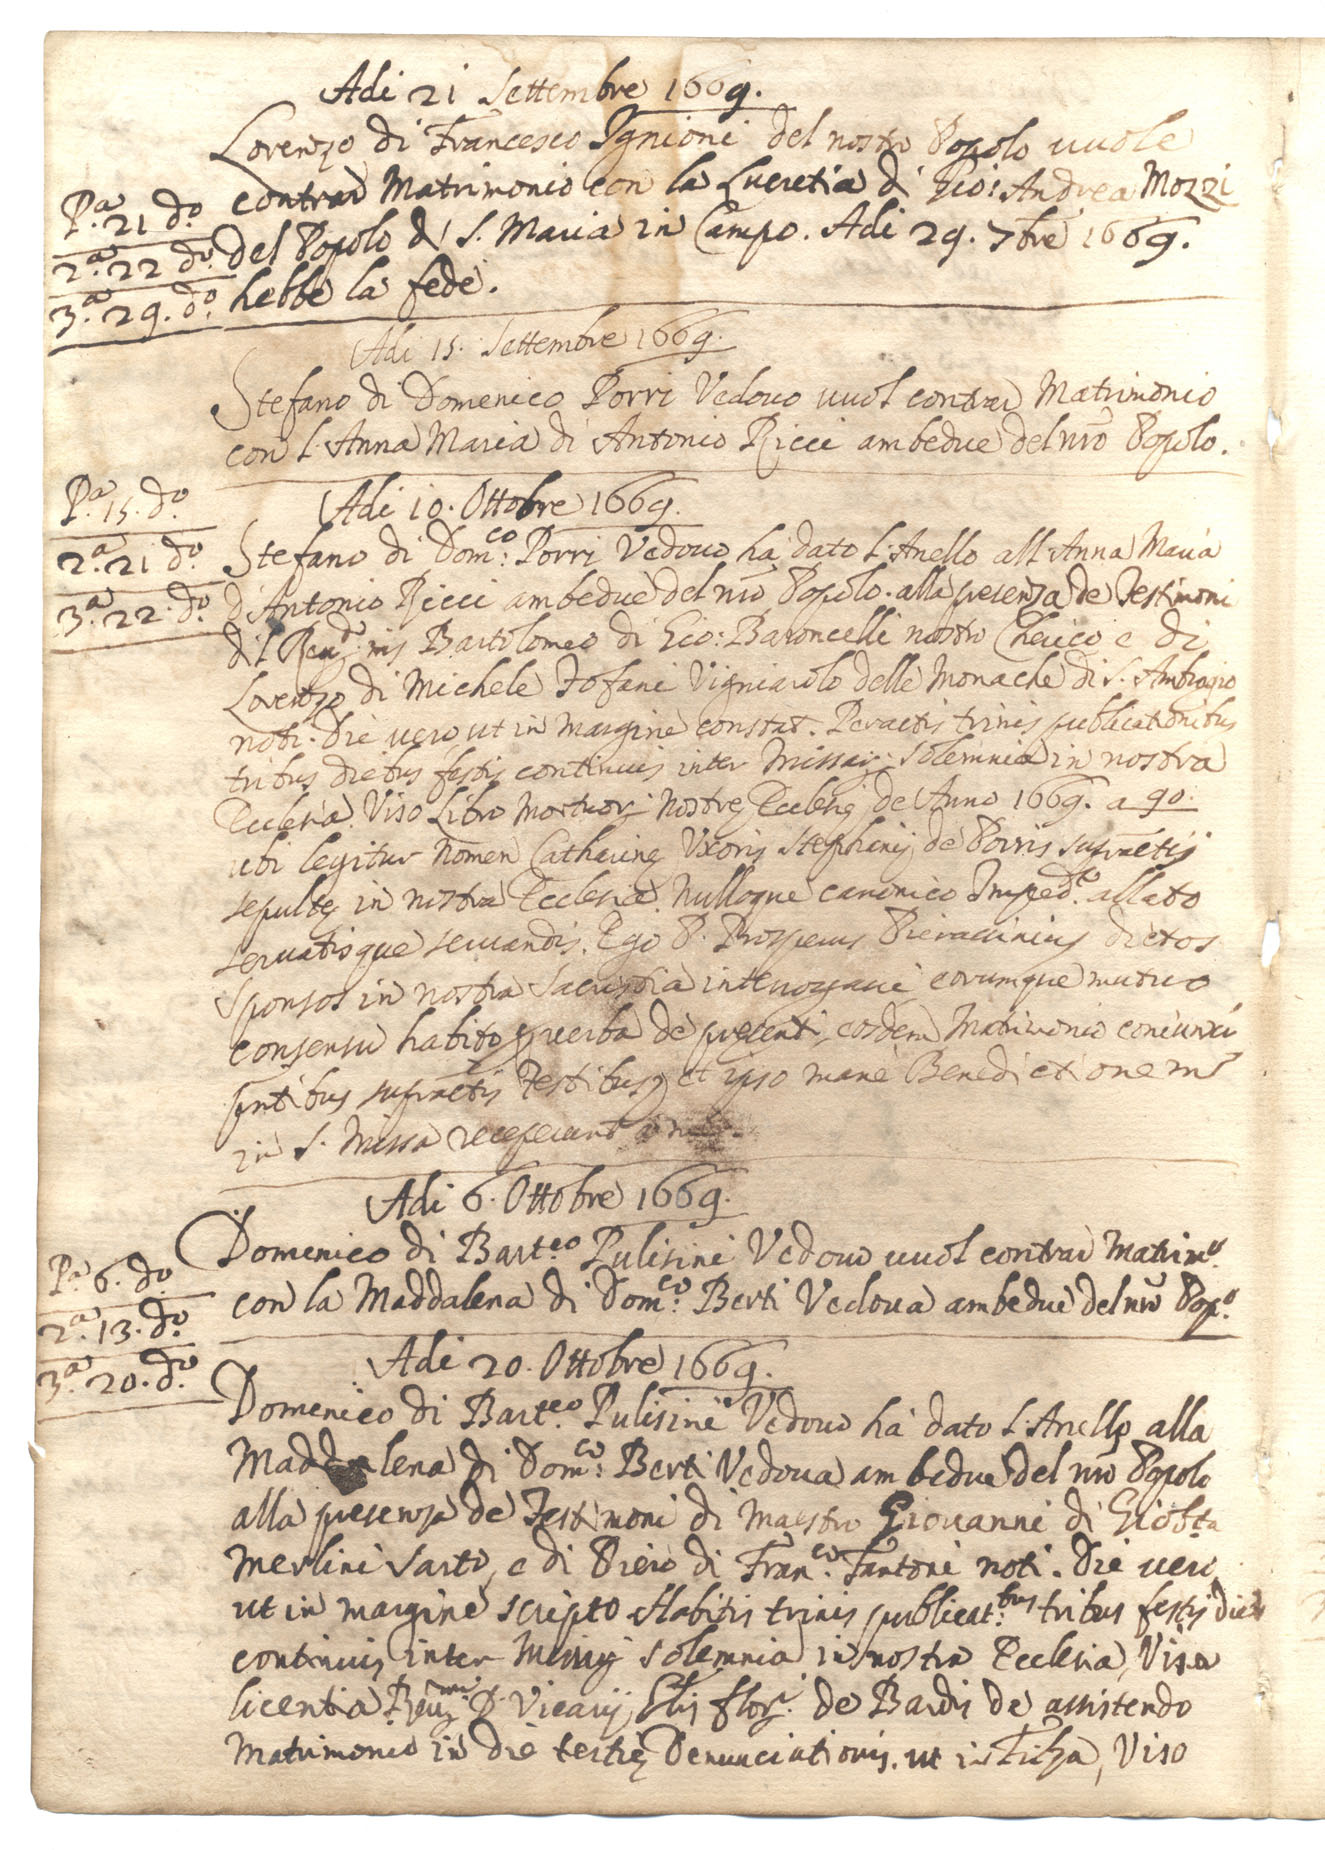 Adi 21 Settembre 1669.
Lorenzo di Francesco Ignioni del nostro Popolo vuole
contrar Matrimonio con la Lucretia di Gio: Andrea Mozzi
P.a 21 do.
del Popolo di S. Maria in Campo. Adi 29. 7bre 1669.
2.a 22 do.
hebbe la fede.
3.a 29. do.
Adi 15. Settembre 1669.
Stefano di Domenico Porri Vedouo vuol contrar Matrimonio
con l'Anna Maria di Antonio Ricci ambedue del nro Popolo.
P.a 15. do.
Adi 10. Ottobre 1669.
2.a 21 do.
Stefano di Dom.co Porri Vedouo ha dato l'Anello all'Anna Maria
3.a 22. do.
d'Antonio Ricci ambedue del nro Popolo. alla presenza de Testimoni
di Bartolomeo di Gio: Baroncelli nostro Cherico e di
Lorenzo di Michele Tofani Vigniaiolo delle Monache di S. Ambrogio
noti. Die uero ut in Margine constat. Peractis trinis publicationibus
tribus diebus festis continuis inter Missarum solemnia in nostra
Ecclesia. Viso Libro Mortuor. nostre Ecclesie de Anno 1669. a 90.
ubi legitur Nomen Catharine Vxoris Stephanij de Porris supractis
sepulte in nostra Ecclesia. Nulloque canonico Imped.to allato
seruatisque seruandis. Ego P. Prosperus Pieraccinius dictos
Sponsos in nostra Sacristia interrogaui eorumque mutuo
consensu habito p uerba de presenti, eosdem Matrimonio coniunxi
pntibus supractis Testibus, et ipso mane Benedictionem
in S. Missa receperunt
Adi 6. Ottobre 1669.
Domenico di Bart.eo Pulisini Vedouo vuol contrar Matrim.o
P.a 6. do.
con la Maddalena di Dom.co Berti Vedoua ambedue del nro Pop.o
2.a 13. do.
Adi 20. Ottobre 1669.
3.a 20. do.
Domenico di Bart.eo Pulisini Vedouo ha dato l'Anello alla
Maddalena di Dom.co Berti Vedoua ambedue del nro Popolo
alla presenza de Testimoni di Maestro Giouanni di Giobta
Merlini Sarto, e di Piero di Fran.co Fantoni noti. Die uero
ut in margine scripto Habitis trinis publicat.bus tribus festis dieb
continuis inter Missarum solemnia in nostra Ecclesia, Visa
licentia D. Vicarij Flor. de Bardis de assistendo
Matrimonio in die tertie Denunciationis. ut in Filza, Viso